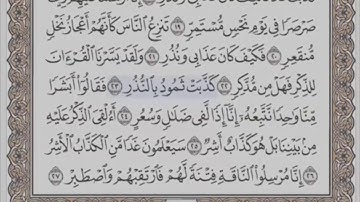 صَرْصَرًا فِي يَوْمِ نَحْسٍ مُّسْتَمِرٍّ ١٩ تَنزِعُ النَّاسَ كَأَنَّهُمْ أَعْجَازُ نَخْلٍ
مُّنقَعِرٍ ٢٠ فَكَيْفَ كَانَ عَذَابِي وَنُذُرِ ٢١ وَلَقَدْ يَسَّرْنَا الْقُرْءَانَ
لِلذِّكْرِ فَهَلْ مِن مُّدَّكِرٍ ٢٢ كَذَّبَتْ ثَمُودُ بِالنُّذُرِ ٢٣ فَقَالُوٓا۟ أَبَشَرًا
مِّنَّا وَٰحِدًا نَّتَّبِعُهُۥٓ إِنَّآ إِذًا لَّفِي ضَلَٰلٍ وَسُعُرٍ ٢٤ أَءُلْقِيَ الذِّكْرُ عَلَيْهِ
مِنۢ بَيْنِنَا بَلْ هُوَ كَذَّابٌ أَشِرٌ ٢٥ سَيَعْلَمُونَ غَدًا مَّنِ الْكَذَّابُ الْأَشِرُ
٢٦ إِنَّا مُرْسِلُوا۟ النَّاقَةِ فِتْنَةً لَّهُمْ فَارْتَقِبْهُمْ وَاصْطَبِرْ ٢٧